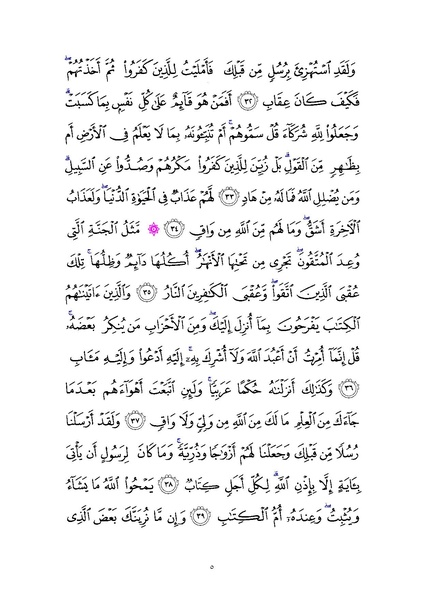 وَلَقَدِ ٱسۡتُهۡزِئَ بِرُسُلٖ مِّن قَبۡلِكَ فَأَمۡلَيۡتُ لِلَّذِينَ كَفَرُواْ ثُمَّ أَخَذۡتُهُمۡۖ
فَكَيۡفَ كَانَ عِقَابِ ٣٢ أَفَمَنۡ هُوَ قَآئِمٌ عَلَىٰ كُلِّ نَفۡسِۭ بِمَا كَسَبَتۡۗ
وَجَعَلُواْ لِلَّهِ شُرَكَآءَ قُلۡ سَمُّوهُمۡۚ أَمۡ تُنَبِّـُٔونَهُۥ بِمَا لَا يَعۡلَمُ فِي ٱلۡأَرۡضِ أَم
بِظَٰهِرٖ مِّنَ ٱلۡقَوۡلِۗ بَلۡ زُيِّنَ لِلَّذِينَ كَفَرُواْ مَكۡرُهُمۡ وَصُدُّواْ عَنِ ٱلسَّبِيلِۗ
وَمَن يُضۡلِلِ ٱللَّهُ فَمَا لَهُۥ مِنۡ هَادٖ ٣٣ لَّهُمۡ عَذَابٞ فِي ٱلۡحَيَوٰةِ ٱلدُّنۡيَاۖ وَلَعَذَابُ
ٱلۡأٓخِرَةِ أَشَقُّۖ وَمَا لَهُم مِّنَ ٱللَّهِ مِن وَاقٖ ٣٤ ۞ مَّثَلُ ٱلۡجَنَّةِ ٱلَّتِي
وُعِدَ ٱلۡمُتَّقُونَۖ تَجۡرِي مِن تَحۡتِهَا ٱلۡأَنۡهَٰرُۖ أُكُلُهَا دَآئِمٞ وَظِلُّهَاۚ تِلۡكَ
عُقۡبَى ٱلَّذِينَ ٱتَّقَواْۖ وَّعُقۡبَى ٱلۡكَٰفِرِينَ ٱلنَّارُ ٣٥ وَٱلَّذِينَ ءَاتَيۡنَٰهُمُ
ٱلۡكِتَٰبَ يَفۡرَحُونَ بِمَآ أُنزِلَ إِلَيۡكَۖ وَمِنَ ٱلۡأَحۡزَابِ مَن يُنكِرُ بَعۡضَهُۥۚ
قُلۡ إِنَّمَآ أُمِرۡتُ أَنۡ أَعۡبُدَ ٱللَّهَ وَلَآ أُشۡرِكَ بِهِۦٓۚ إِلَيۡهِ أَدۡعُواْ وَإِلَيۡهِ مَـَٔابِ
٣٦ وَكَذَٰلِكَ أَنزَلۡنَٰهُ حُكۡمًا عَرَبِيّٗاۚ وَلَئِنِ ٱتَّبَعۡتَ أَهۡوَآءَهُم بَعۡدَمَا
جَآءَكَ مِنَ ٱلۡعِلۡمِ مَا لَكَ مِنَ ٱللَّهِ مِن وَلِيّٖ وَلَا وَاقٖ ٣٧ وَلَقَدۡ أَرۡسَلۡنَا
رُسُلٗا مِّن قَبۡلِكَ وَجَعَلۡنَا لَهُمۡ أَزۡوَٰجٗا وَذُرِّيَّةٗۚ وَمَا كَانَ لِرَسُولٍ أَن يَأۡتِيَ
بِـَٔايَةٍ إِلَّا بِإِذۡنِ ٱللَّهِۗ لِكُلِّ أَجَلٖ كِتَابٞ ٣٨ يَمۡحُواْ ٱللَّهُ مَا يَشَآءُ
وَيُثۡبِتُۖ وَعِندَهُۥٓ أُمُّ ٱلۡكِتَٰبِ ٣٩ وَإِن مَّا نُرِيَنَّكَ بَعۡضَ ٱلَّذِي
٥